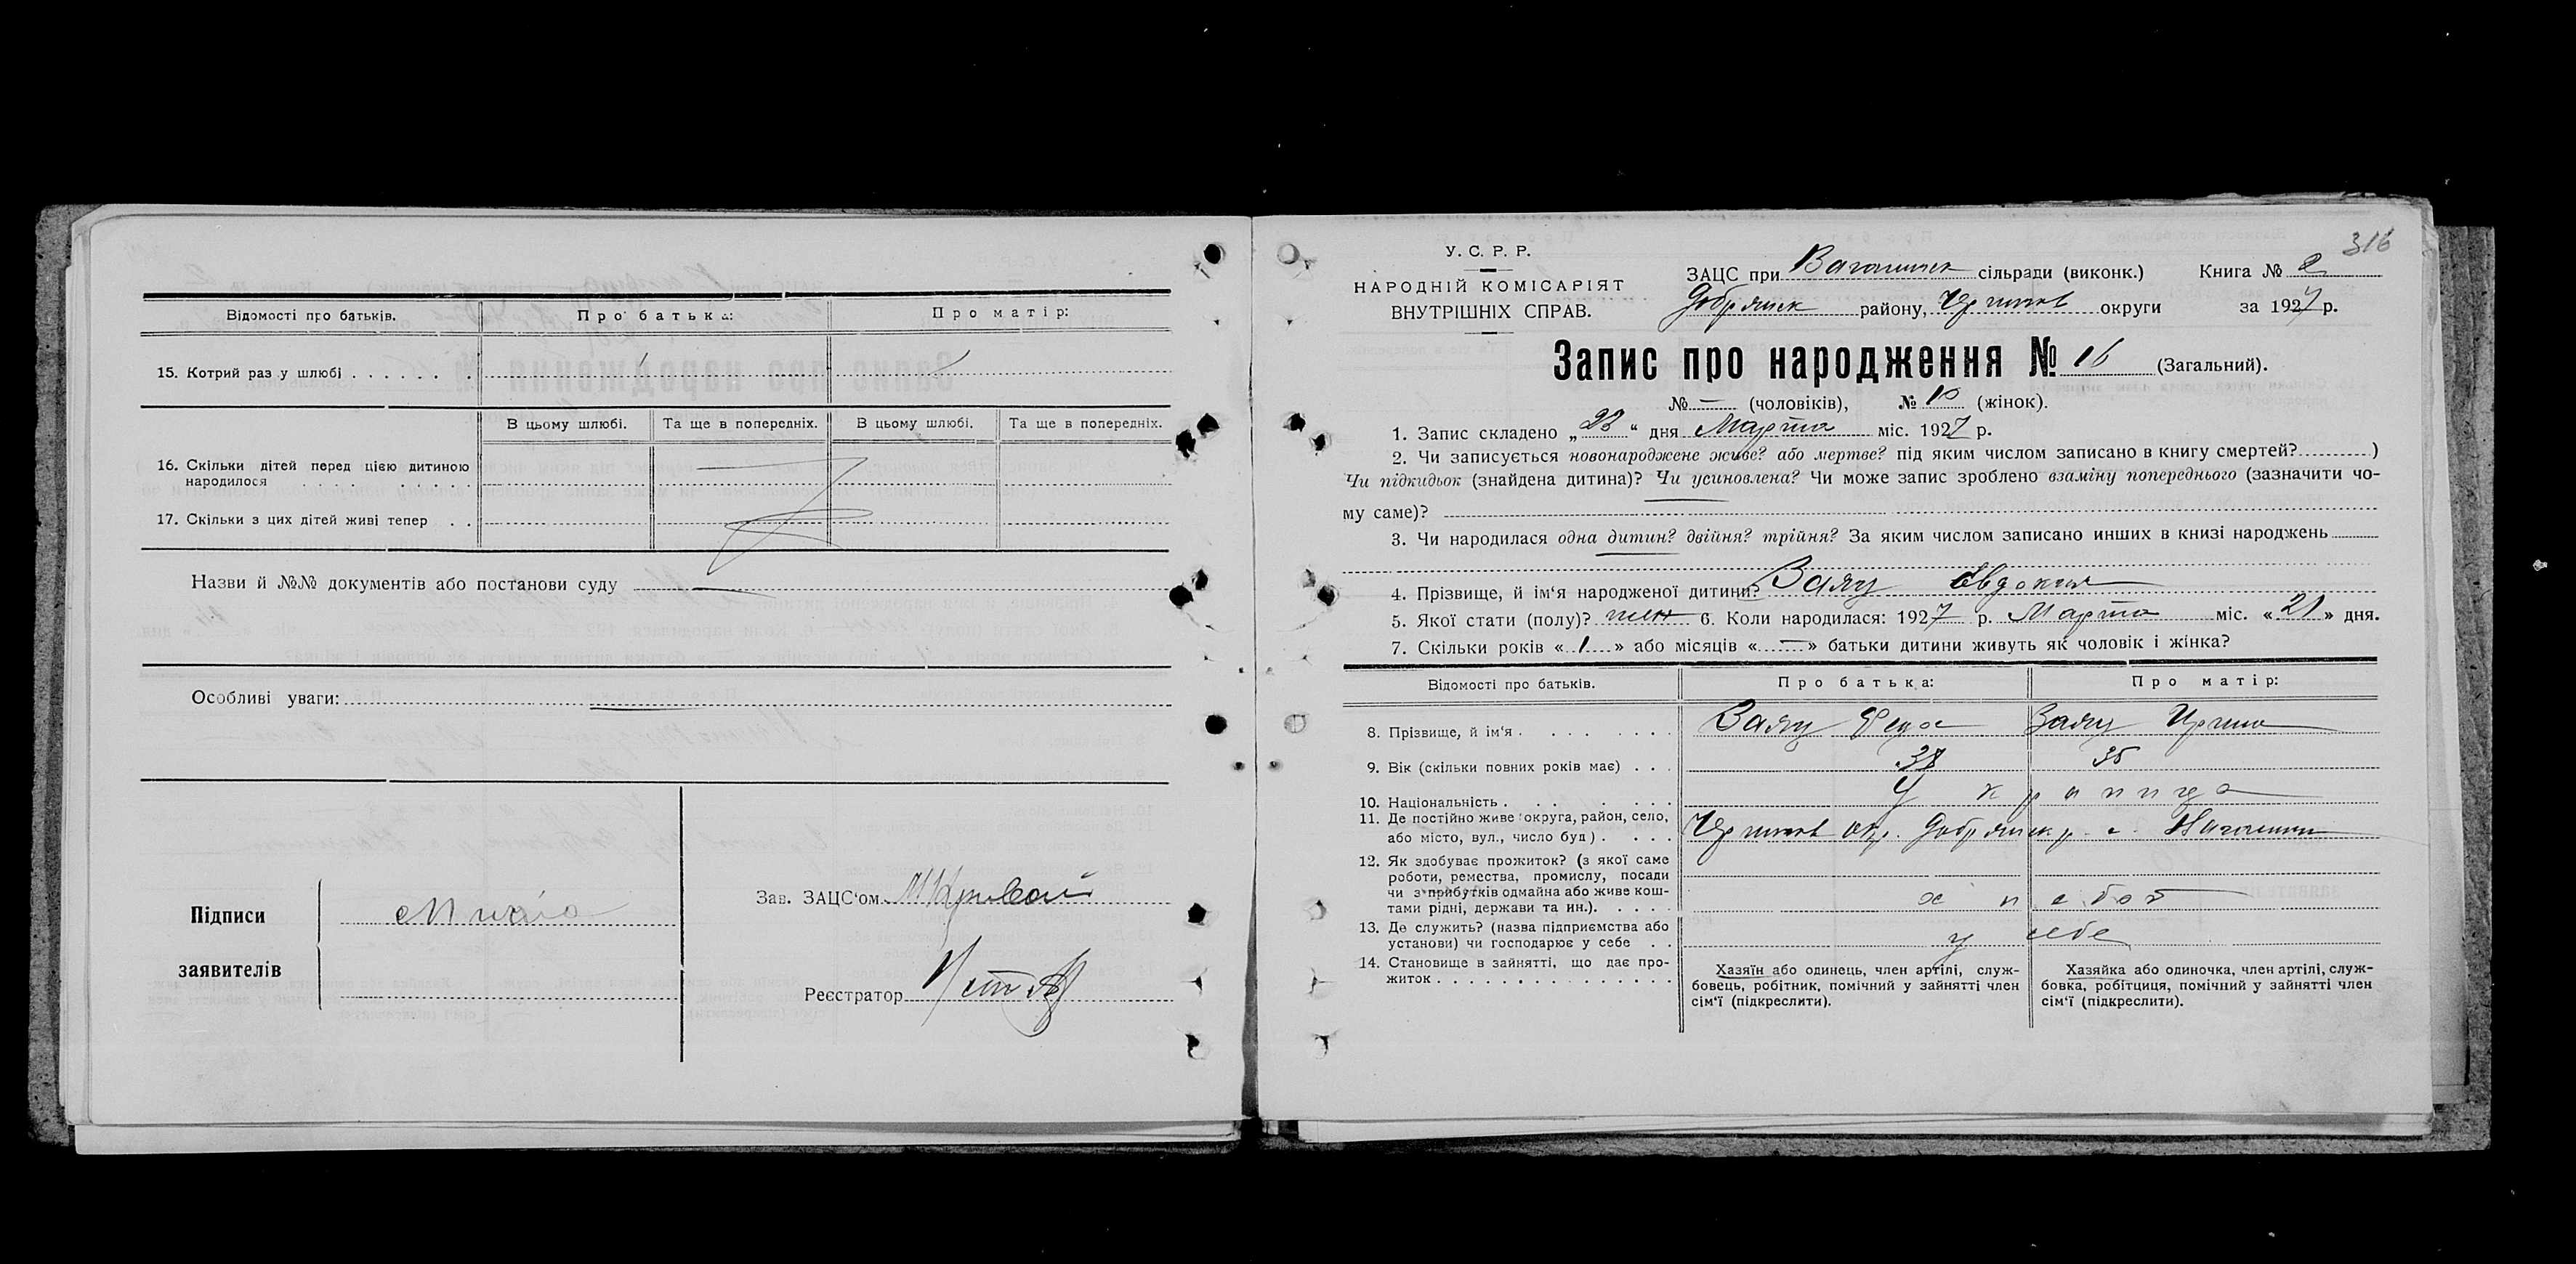 Відомості про батьків. Про батька: Про матір:
15. Котрий раз у шлюбі . . . . . . . 1 1
В цьому шлюбі. Та ще в попередніх. В цьому шлюбі. Та ще в попередніх.
16. Скільки дітей перед цією дитиною
народилося . . . . . . . . .
17. Скільки з цих дітей живі тепер . .
Назви й №№ документів або постанови суду
Особливі уваги:
Підписи
заявителів
Зав. ЗАЦС'ом
Реєстратор
316
У. С. Р. Р.
НАРОДНІЙ КОМІСАРІЯТ
ВНУТРІШНІХ СПРАВ.
ЗАЦС при сільради (виконк.) Книга № 2
Добрянск району, Чернигов округи за 1927 р.
Запис про народження № 16 (Загальний).
№ — (чоловіків), № 10 (жінок).
1. Запис складено „23“ дня Марта міс. 1927 р.
2. Чи записується новонароджене живе? або мертве? під яким числом записано в книгу смертей? )
Чи підкидьок (знайдена дитина)? Чи усиновлена? Чи може запис зроблено взаміну попереднього (зазначити чо-
му саме)?
3. Чи народилася одна дитин? двійня? трійня? За яким числом записано инших в книзі народжень
4. Прізвище, й ім'я народженої дитини? Заяц Евдокия
5. Якої стати (полу)? жен 6. Коли народилася: 1927 р. Марта міс. «21» дня.
7. Скільки років «1» або місяців «—» батьки дитини живуть як чоловік і жінка?
Відомості про батьків. Про батька: Про матір:
8. Прізвище, й ім'я . . . . . . Заяц Заяц
9. Вік (скільки повних років має) . . . 38 35
10. Національність . . . . . . . Украинца
11. Де постійно живе: округа, район, село,
або місто, вул., число буд) . . . . Чернигов окр. Добрянск р. с.
12. Як здобуває прожиток? (з якої саме
роботи, ремества, промислу, посади
чи з прибутків одмайна або живе кош-
тами рідні, держави та ин.). . . . . хлебоб
13. Де служить? (назва підприємства або
установи) чи господарює у себе . . у себе
14. Становище в зайнятті, що дає про-
житок . . . . . . . . . . . . . .
Хазяїн або одинець, член артілі, служ-
бовець, робітник, помічний у зайнятті член
сім'ї (підкреслити).
Хазяйка або одиночка, член артілі, служ-
бовка, робітциця, помічний у зайнятті член
сім'ї (підкреслити).